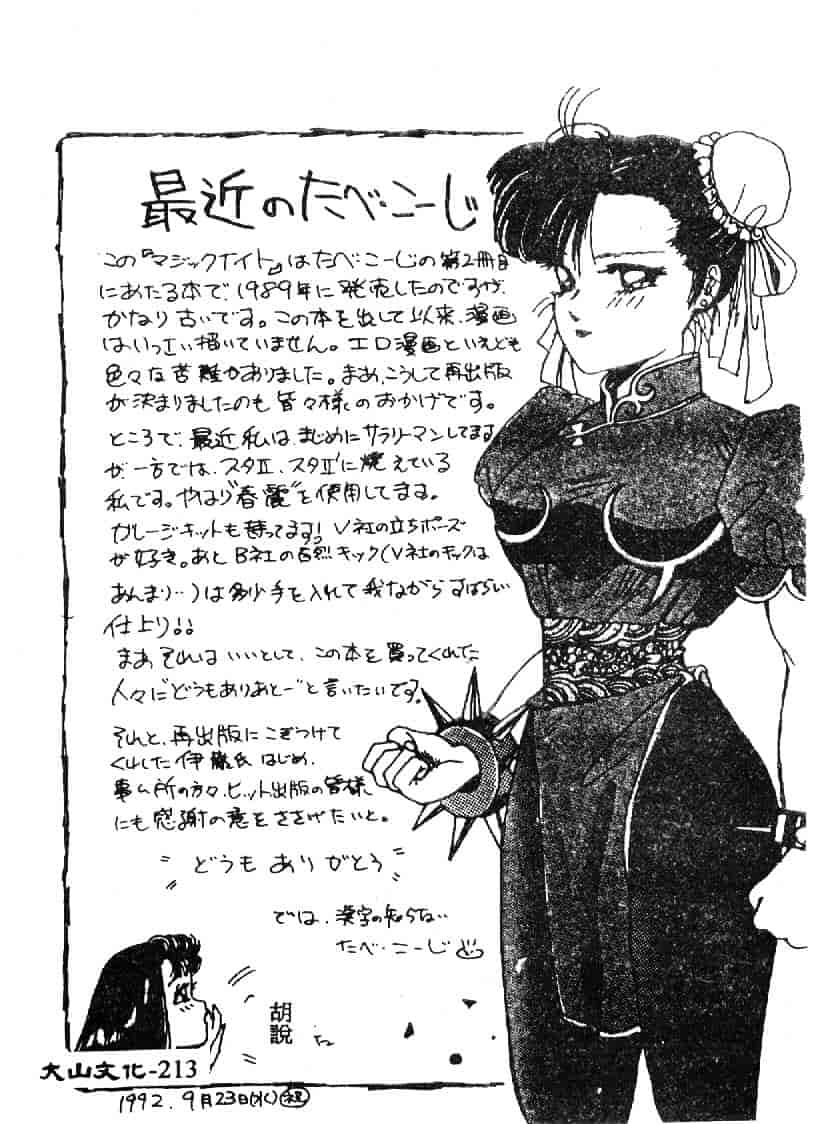 最近のたべ・こーじ
この『マジックナイト』はたべ・こーじの第2冊目
にあたる本で、1989年に発売したのですが、
かなり古いです。この本を出して以来、漫画
はいっさい描いていません。エロ漫画といえども
色々な苦難がありました。まあ、こうして再出版
が決まりましたのも皆々様のおかげです。
ところで、最近私は、まじめにサラリーマンしてます
が、一方では、スタⅡ、スタⅡ'に燃えている
私です。やはり"春麗"を使用してます。
ガレージキットも持ってます!V社の立ちポーズ
が好き。あとB社の百烈キック(V社のキックは
あんまり‥)は多少手を入れて我ながらすばらしい
仕上り!!
まあ、それはいいとして、この本を買ってくれた
人々に"どうもありあとー"と言いたいです。
それと、再出版にこぎつけて
くれした伊 氏はじめ、
事ム所の方々、ヒット出版の皆様
にも感謝の意をささげたいと。
"どうもありがとう"
では、漢字の知らない
たべ・こーじ
胡說
大山文化-213
1992.9月23日(水)㊗